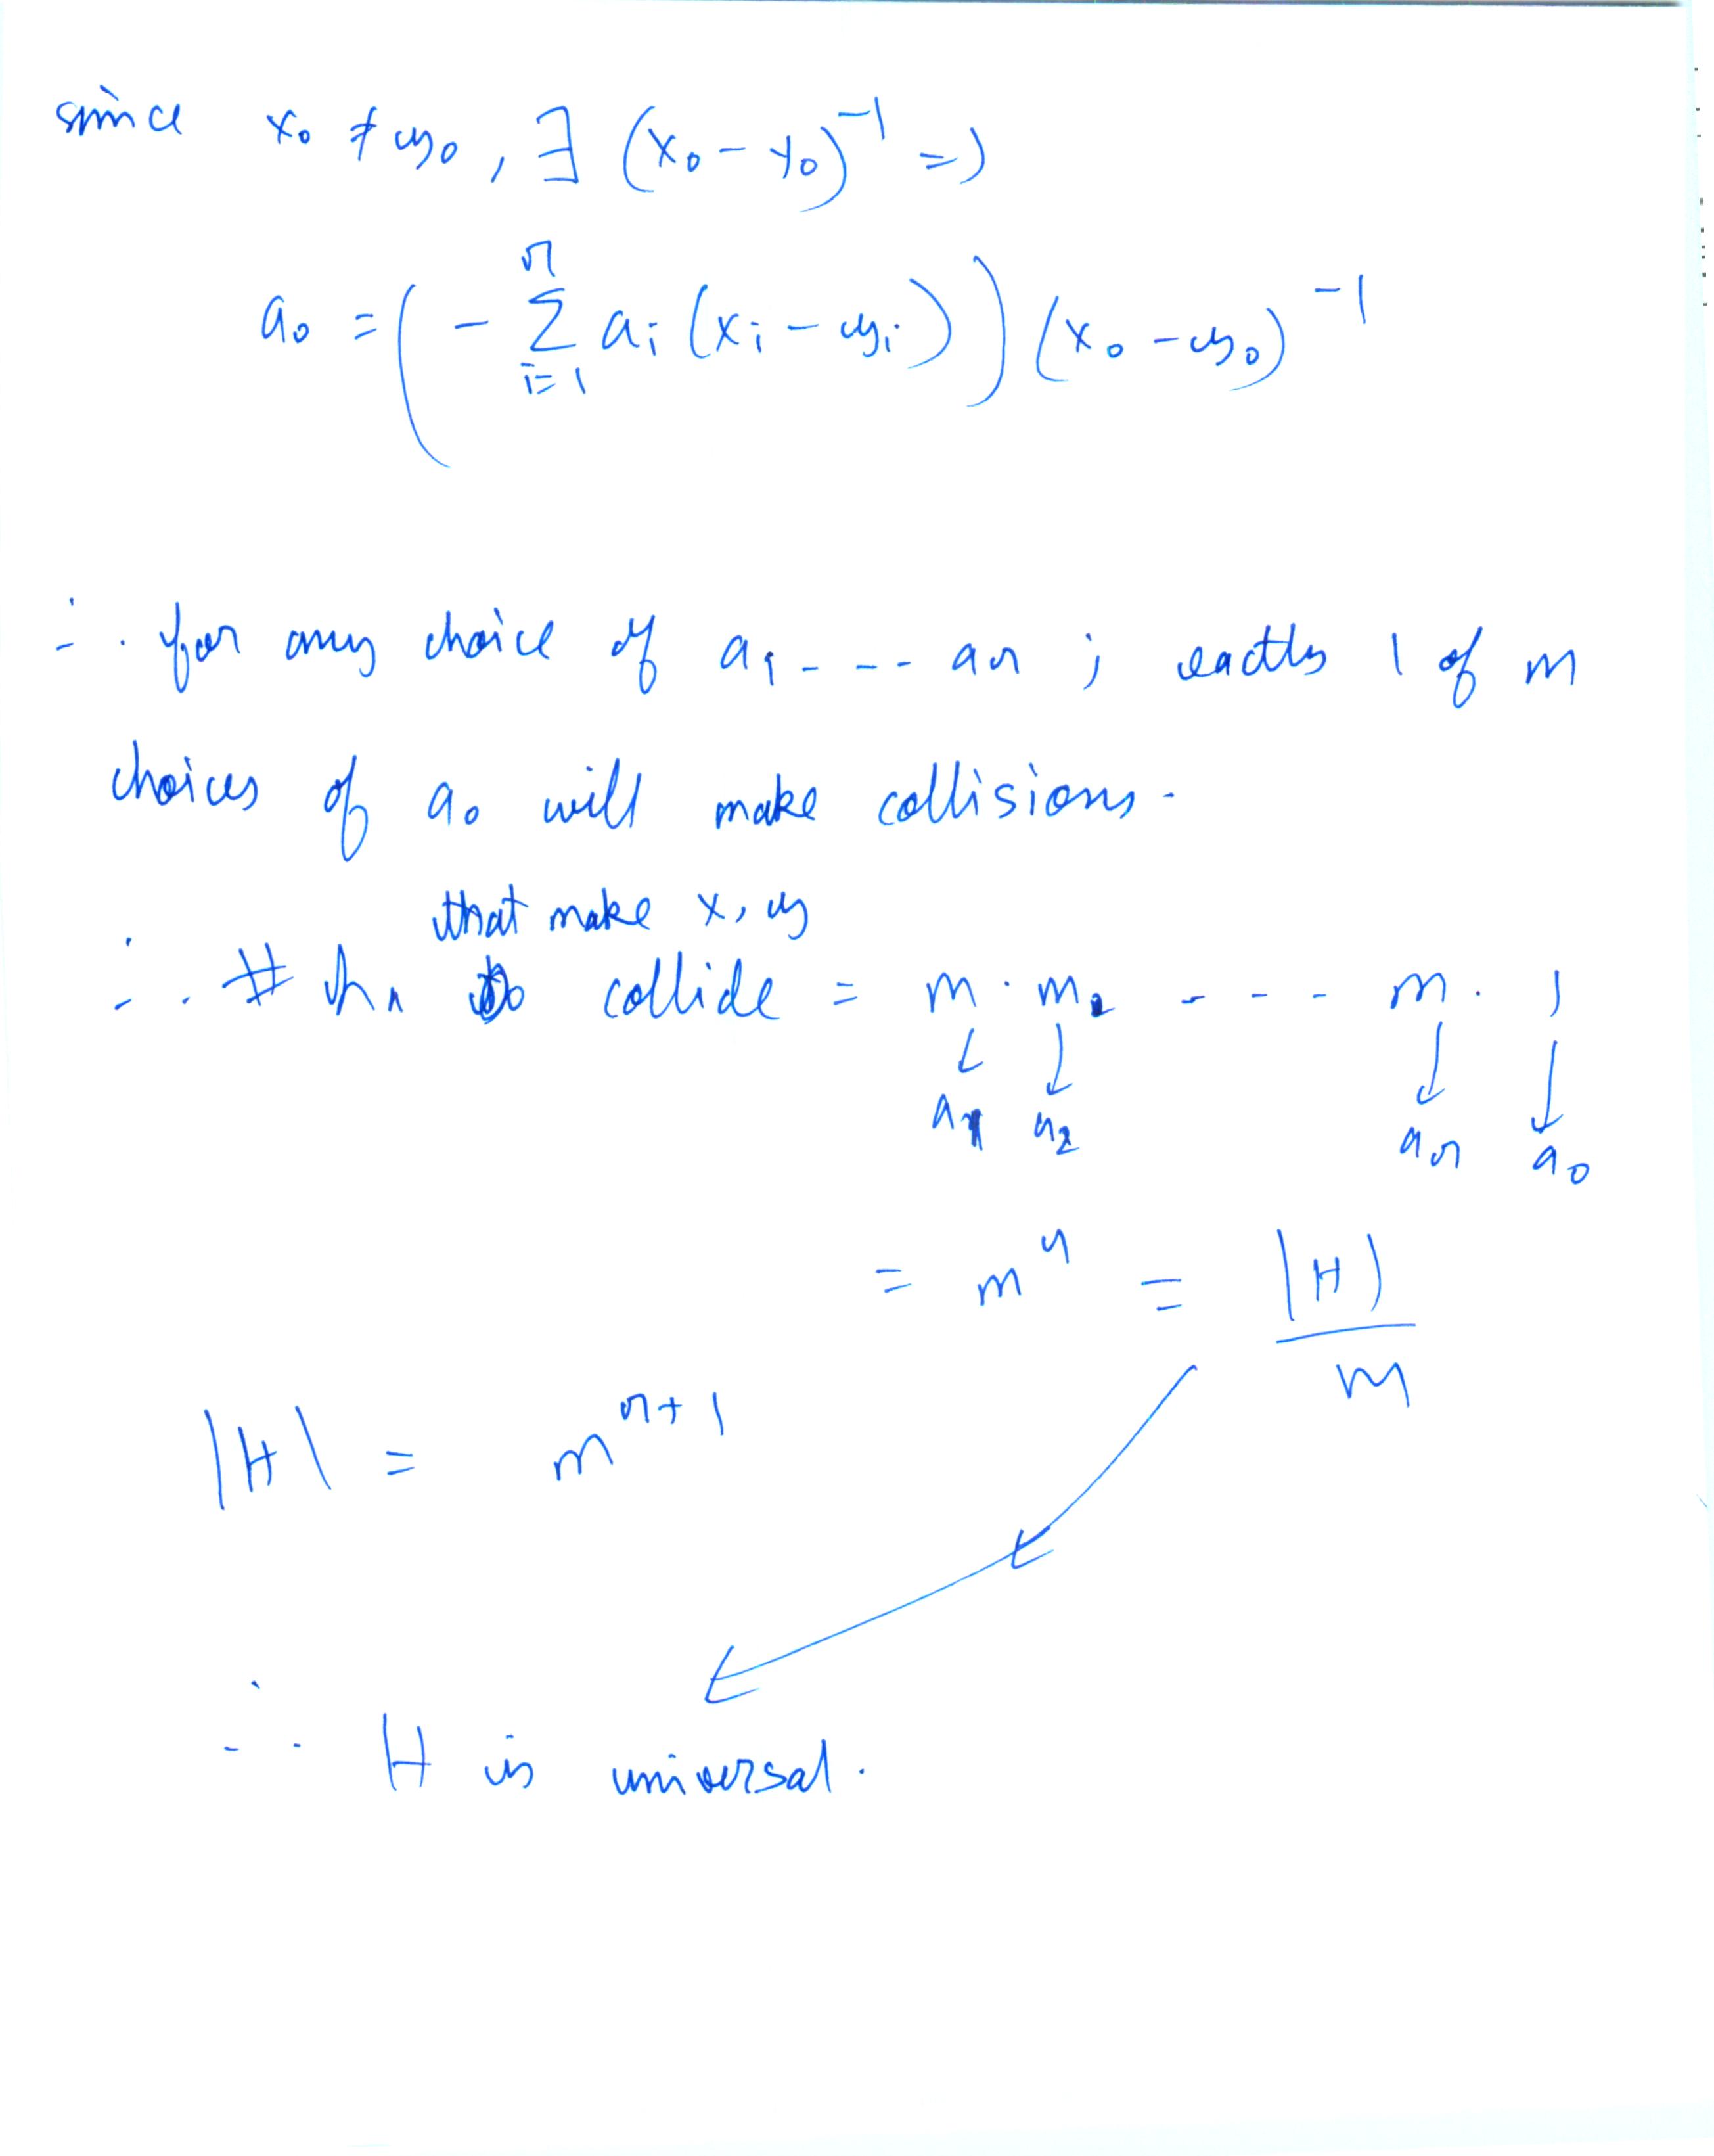 since x₀ ≠ y₀, ∃ (x₀ - y₀)⁻¹ =>
a₀ = ( - Σᵢ₌₁ʳ aᵢ (xᵢ - yᵢ) ) (x₀ - y₀)⁻¹
∴ for any choice of a₁ - - - aᵣ ; exactly 1 of m
choices of a₀ will make collisions.
that make x, y
∴ # hₐ collide = m · m - - - m · 1
↓ ↓ ↓ ↓
a₁ a₂ aᵣ a₀
= mʳ = |H| / m
|H| = mʳ⁺¹
∴ H is universal.